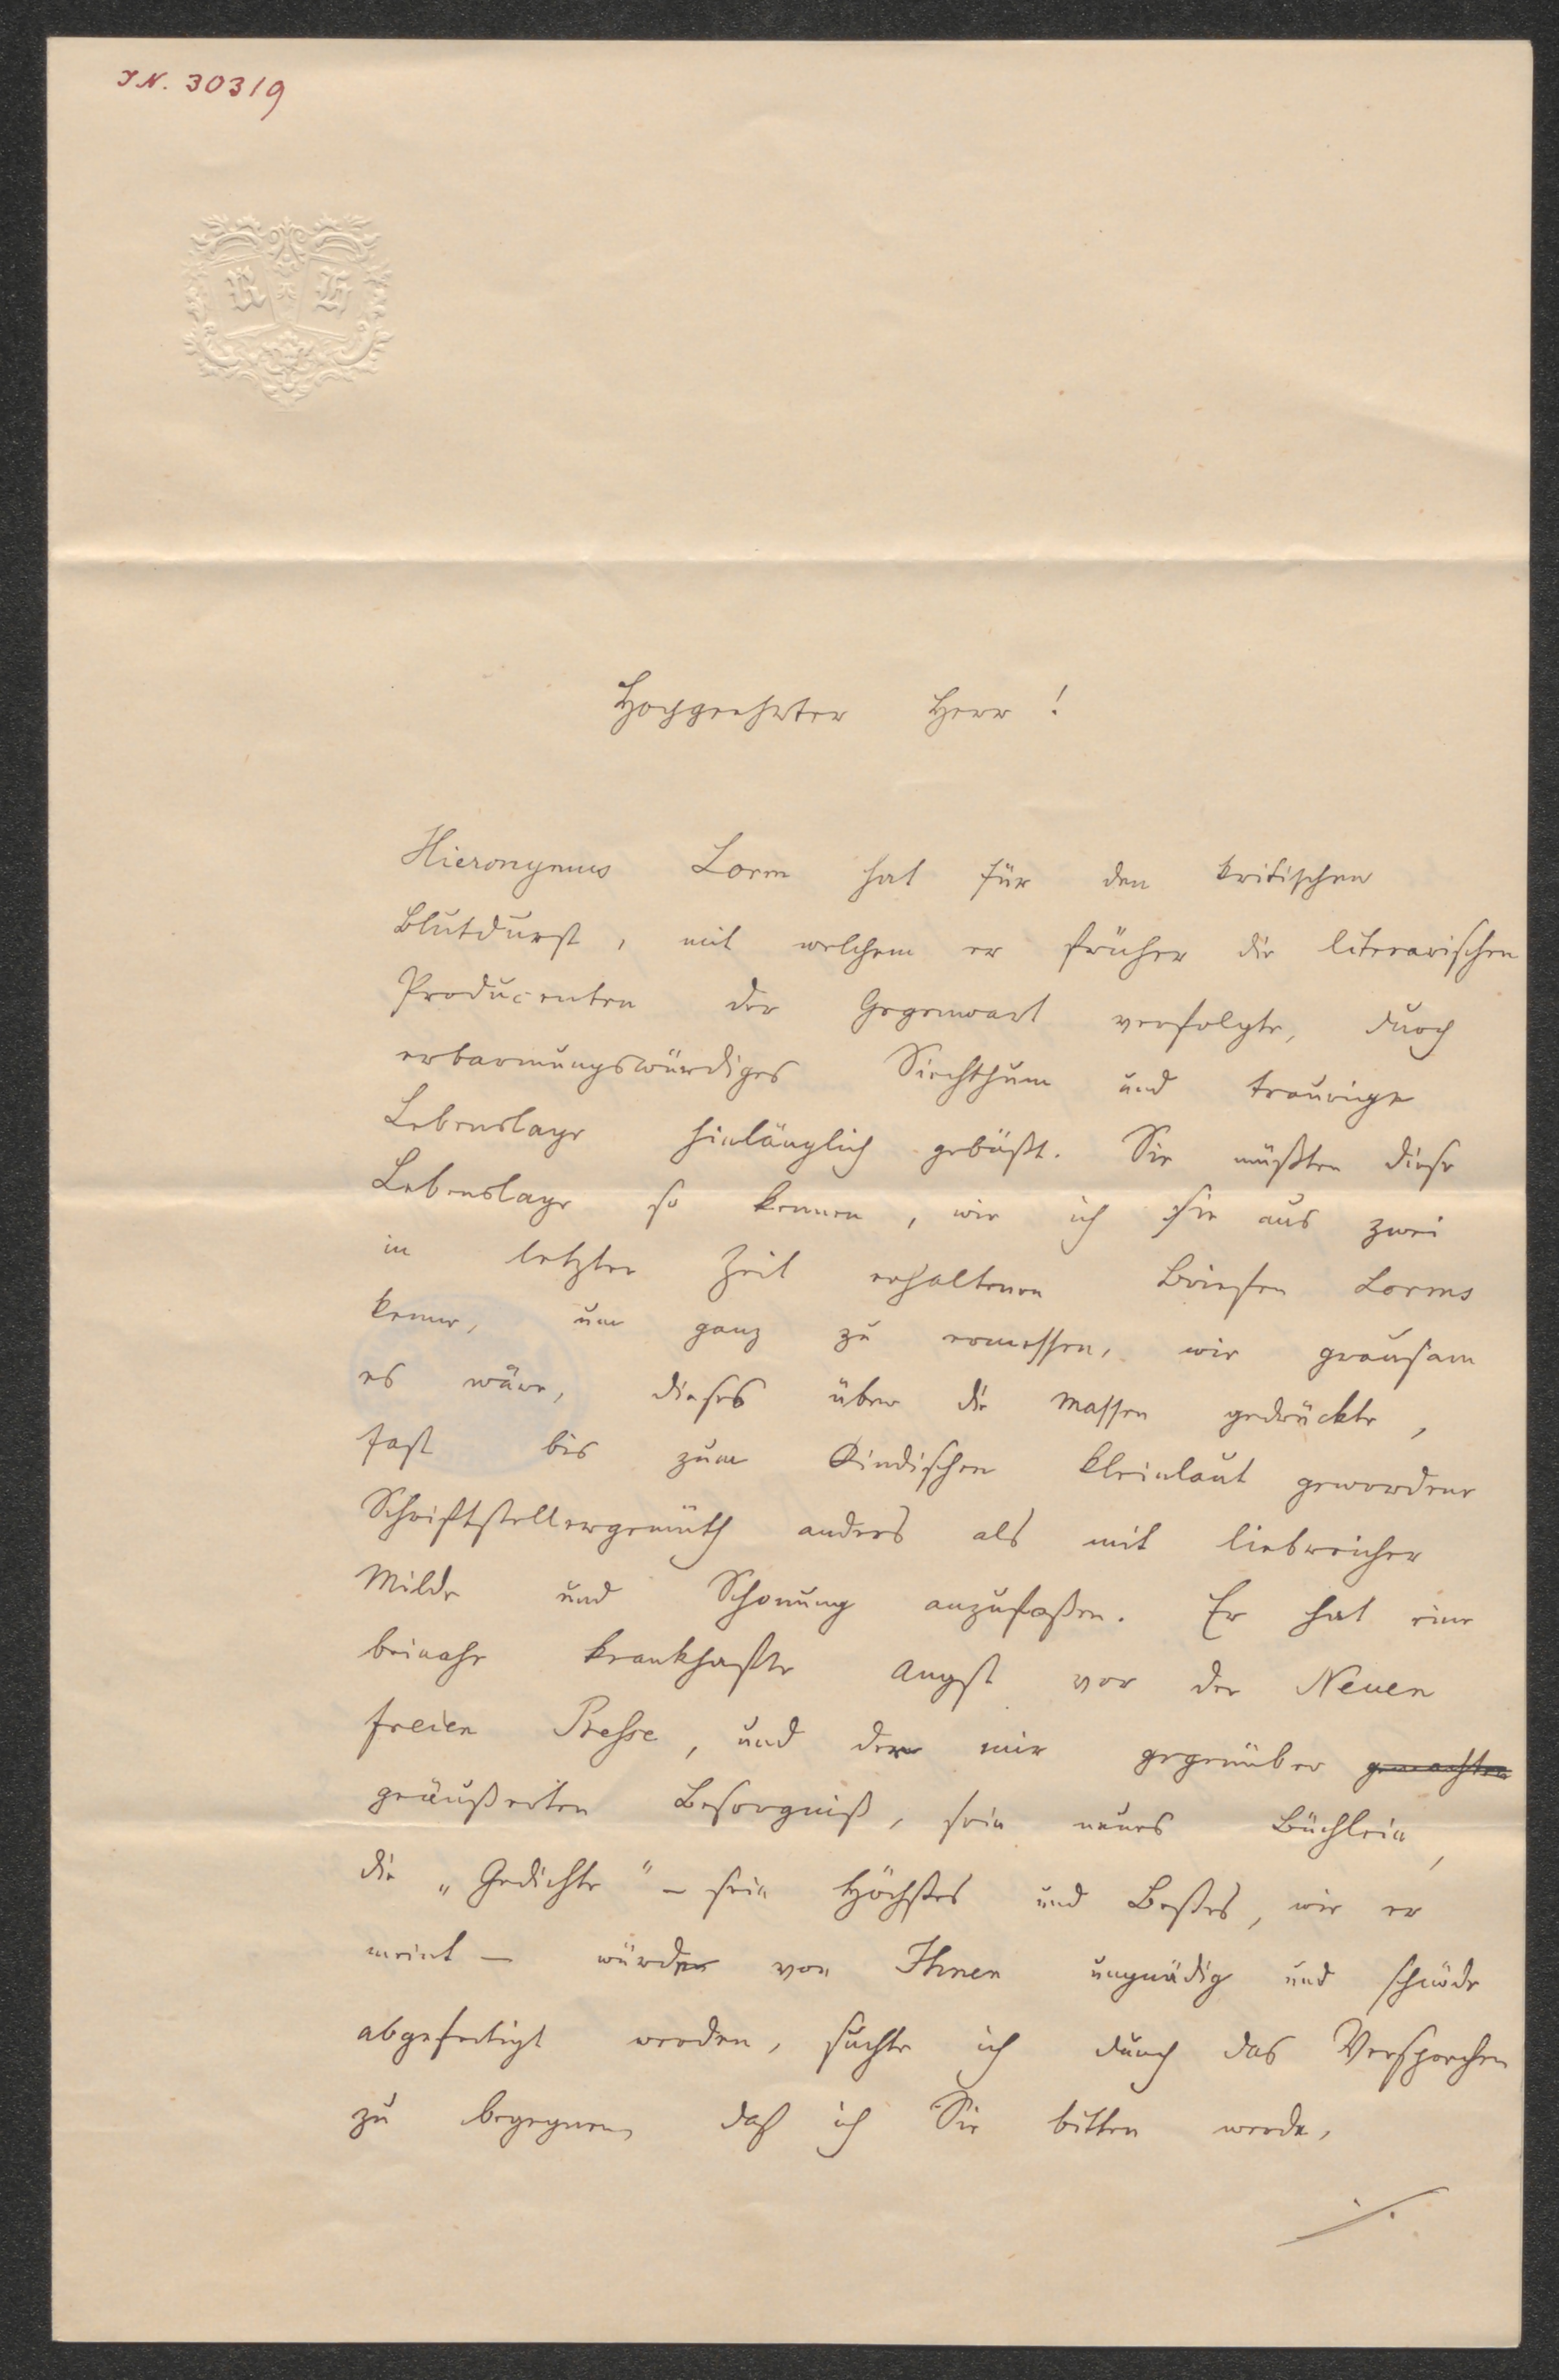 IN. 30319
R H
Hochgeehrter Herr!
Hieronymus Lorm hat für den kritischen
Blutdurst, mit welchem er früher die literarischen
Producenten der Gegenwart verfolgte, durch
erbarmungswürdiges Siechthum und traurige
Lebenslage hinlänglich gebüßt. Sie müßten diese
Lebenslage so kennen, wie ich sie aus zwei
in letzter Zeit erhaltenen Briefen Lorms
kenne, um ganz zu ermessen, wie grausam
es wäre, dieses über die Massen gedrückte,
fast bis zum Kindischen kleinlaut gewordene
Schriftstellergemüth anders als mit liebreicher
Milde und Schonung anzufaßen. Er hat eine
beinahe krankhafte Angst vor der Neuen
freien Presse, und der mir gegenüber gemachten
geäußerten Besorgniß, sein neues Büchlein,
die „Gedichte" – sein Höchstes und Bestes, wie er
meint – würde von Ihnen ungnädig und schnöde
abgefertigt werden, suchte ich durch das Versprechen
zu begegnen, daß ich Sie bitten werde,
./.